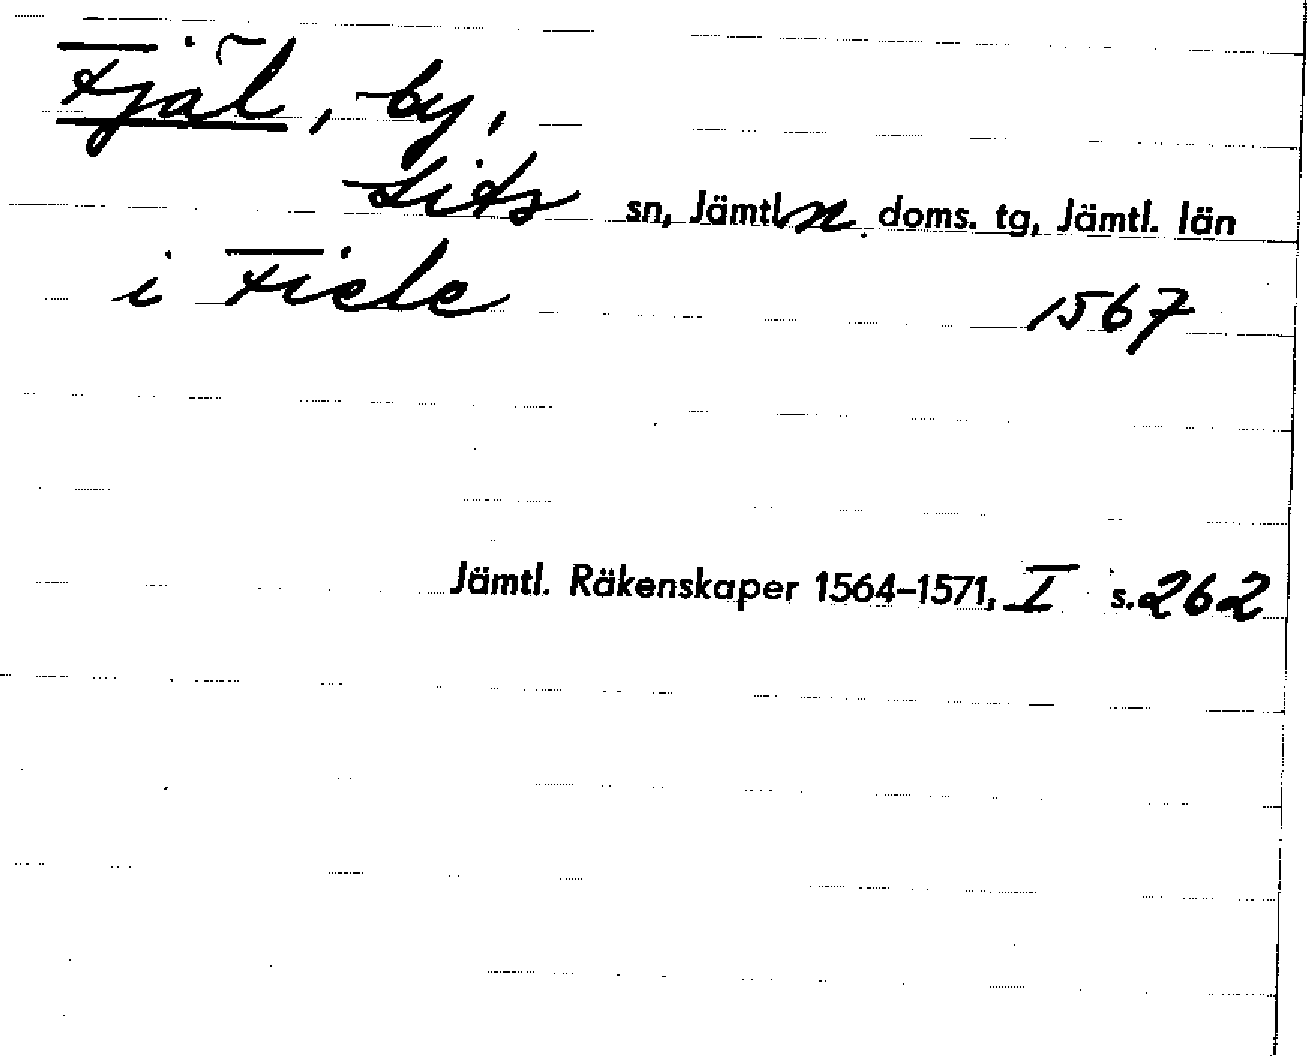 Fjäl, by,
Lits sn, Jämtl. n. doms. tg, Jämtl. län
i Fiele 1567
Jämtl. Räkenskaper 1564-1571, I s. 262